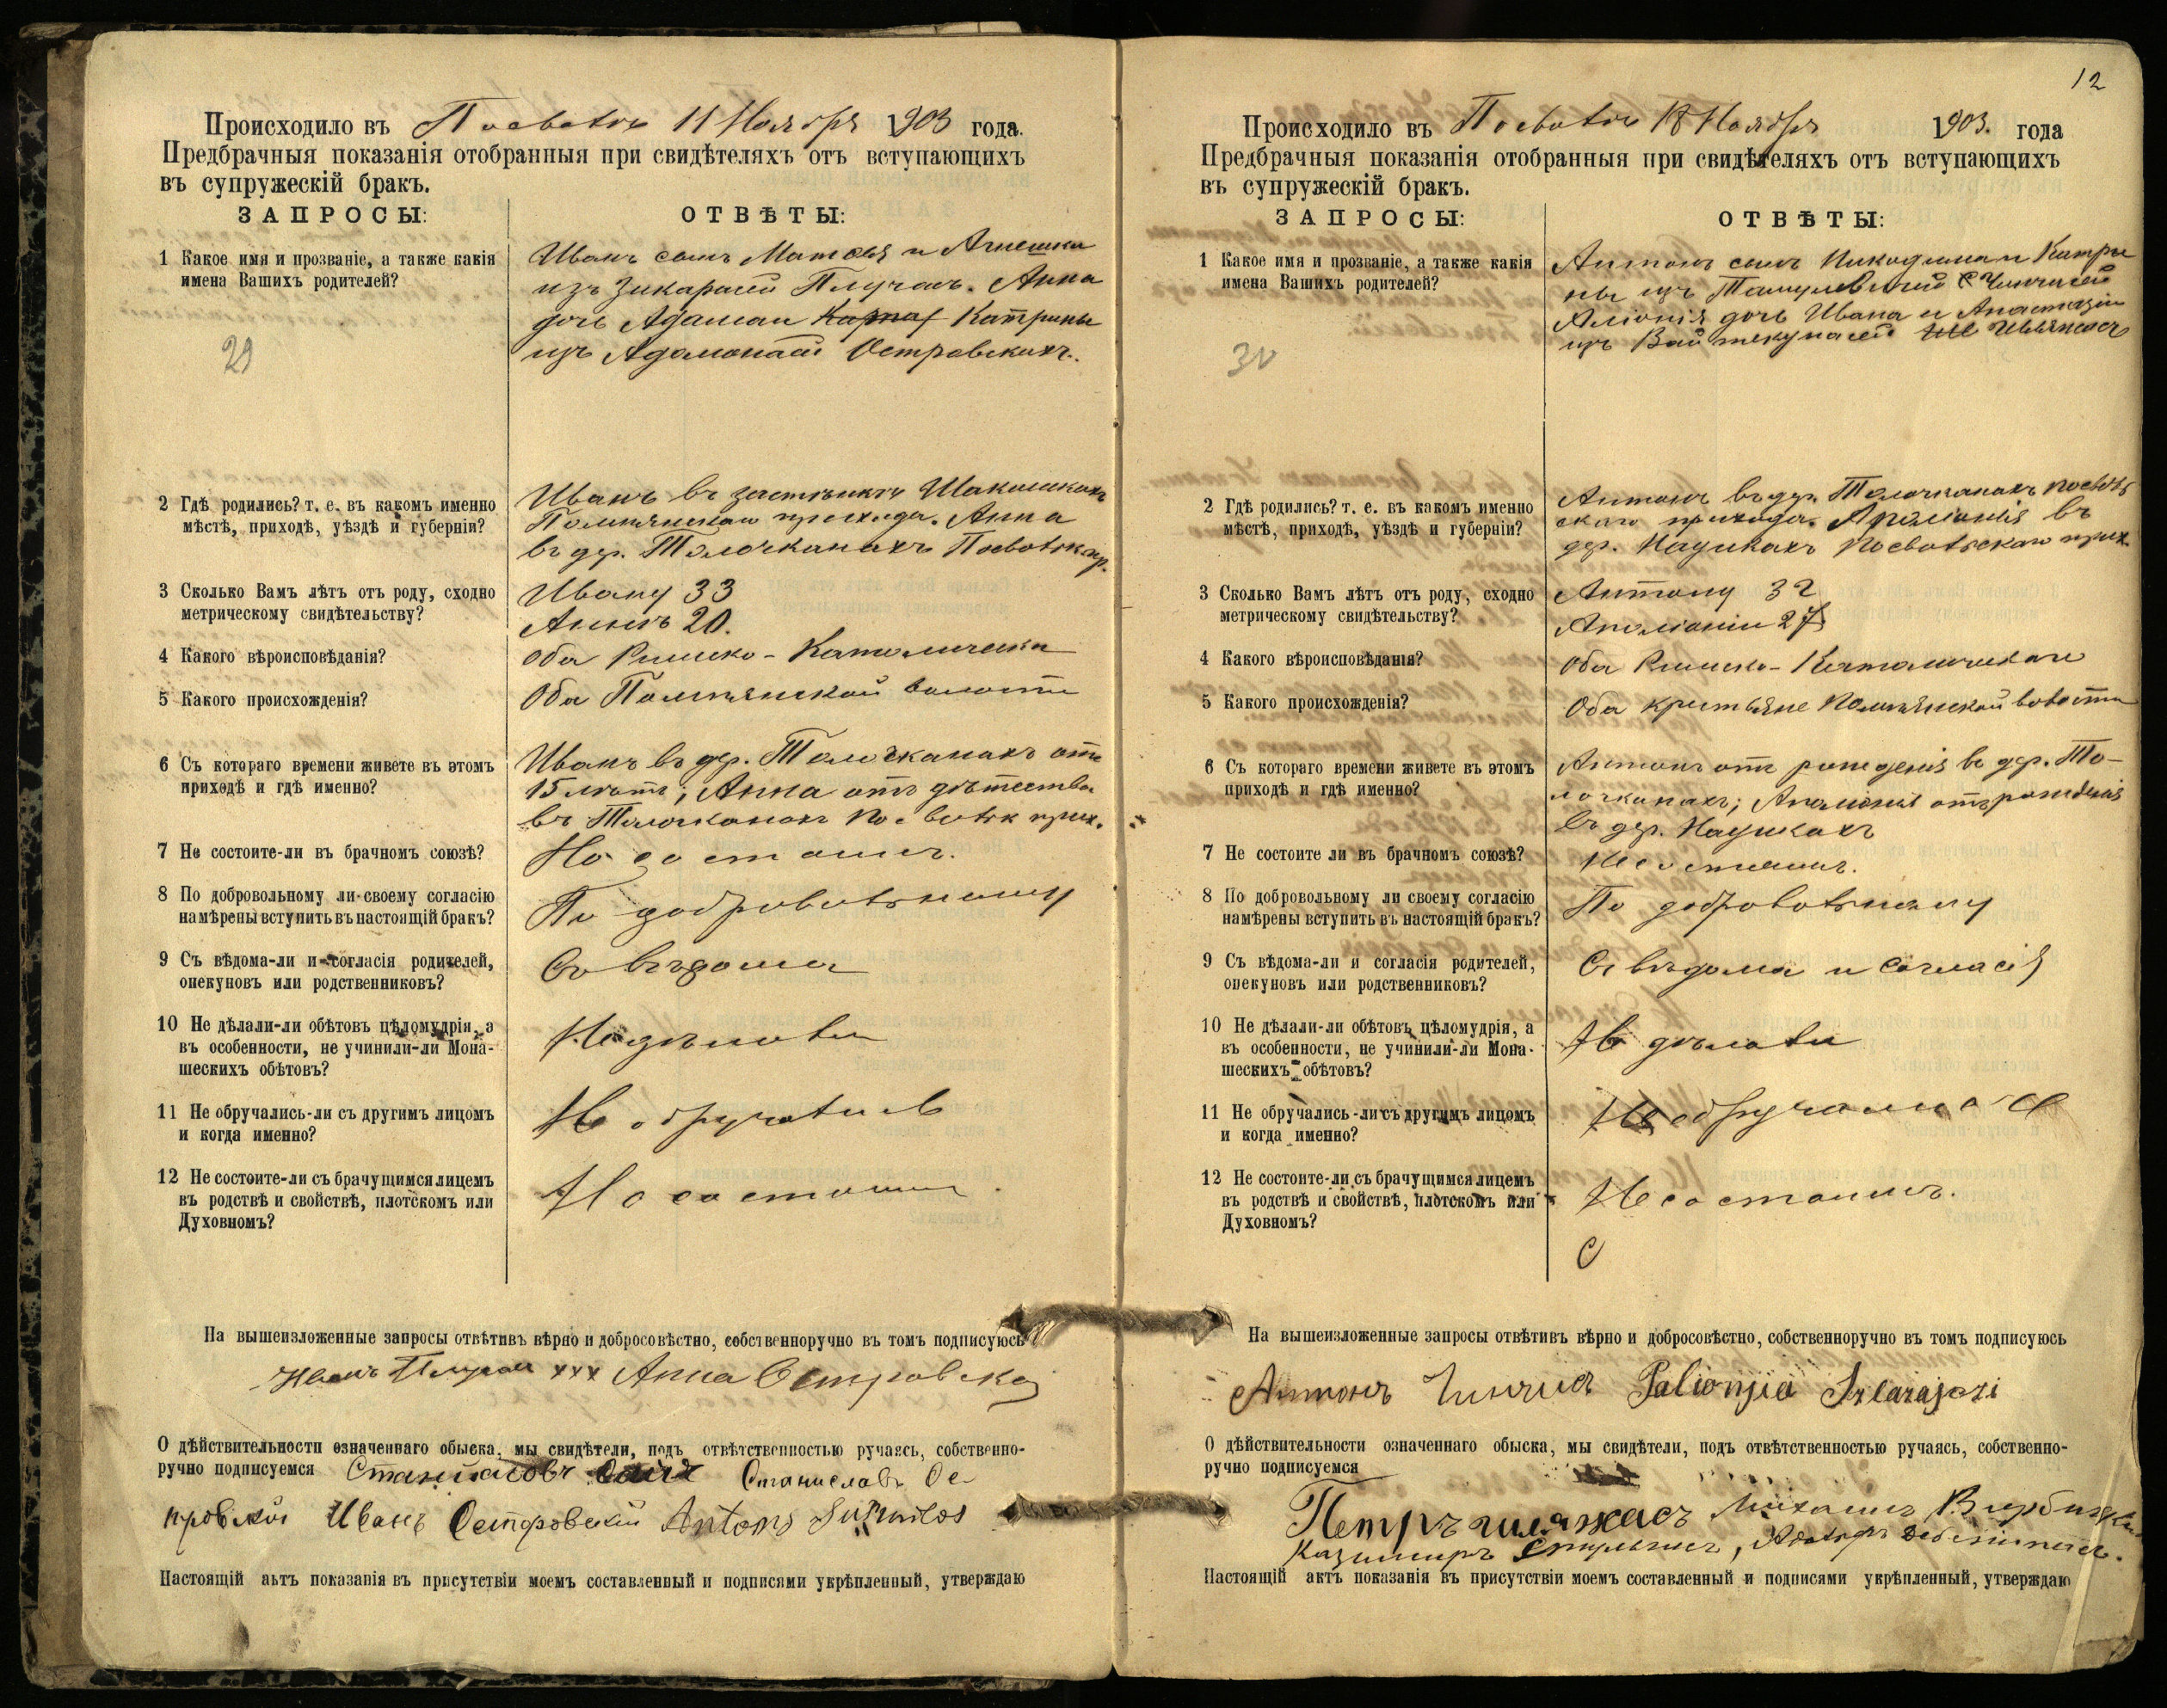 Происходило въ 11 Ноября 1903 года.
Предбрачныя показанія отобранныя при свидѣтеляхъ отъ вступающихъ
въ супружескій бракъ.
ЗАПРОСЫ: ОТВѢТЫ:
1 Какое имя и прозваніе, а также какія
имена Вашихъ родителей?
Иванъ сынъ Матвѣя и Агнешки
изъ Анна
дочь Адама и Катрины
изъ Островскихъ.
29
2 Гдѣ родились? т. е. въ какомъ именно
мѣстѣ, приходѣ, уѣздѣ и губерніи?
Иванъ въ застѣнкѣ
прихода. Анна
въ дер. Толочканахъ
3 Сколько Вамъ лѣтъ отъ роду, сходно
метрическому свидѣтельству?
Ивану 33
Аннѣ 20.
4 Какого вѣроисповѣданія?
Оба Римско-Католическа
5 Какого происхожденія?
Оба волости
6 Съ котораго времени живете въ этомъ
приходѣ и гдѣ именно?
Иванъ въ дер. Толочканахъ отъ
15 лѣтъ; Анна отъ дѣтства
въ Толочканахъ
7 Не состоите-ли въ брачномъ союзѣ?
Не состоимъ.
8 По добровольному ли-своему согласію
намѣрены вступить въ настоящій бракъ?
По добровольному
9 Съ вѣдома-ли и-согласія родителей,
опекуновъ или родственниковъ?
Съ вѣдома
10 Не дѣлали-ли обѣтовъ цѣломудрія, а
въ особенности, не учинили-ли Мона-
шескихъ обѣтовъ?
Не дѣлали
11 Не обручались-ли съ другимъ лицомъ
и когда именно?
Не обручались
12 Не состоите-ли съ брачущимся лицемъ
въ родствѣ и свойствѣ, плотскомъ или
Духовномъ?
Не состоимъ.
На вышеизложенные запросы отвѣтивъ вѣрно и добросовѣстно, собственноручно въ томъ подписуюсь
Иванъ xxx Анна Островска
О дѣйствительности означеннаго обыска, мы свидѣтели, подъ отвѣтственностью ручаясь, собственно-
ручно подписуемся Станиславъ Ос-
тровскій Иванъ Островскій Antons
Настоящій актъ показанія въ присутствіи моемъ составленный и подписями укрѣпленный, утверждаю
12
Происходило въ 18 Ноября 1903. года
Предбрачныя показанія отобранныя при свидѣтеляхъ отъ вступающихъ
въ супружескій бракъ.
ЗАПРОСЫ: ОТВѢТЫ:
1 Какое имя и прозваніе, а также какія
имена Вашихъ родителей?
Антонъ сынъ Никодима и Катри
ны изъ
дочь Ивана и Анастазіи
изъ
30
2 Гдѣ родились? т. е. въ какомъ именно
мѣстѣ, приходѣ, уѣздѣ и губерніи?
Антонъ въ дер. Толочканахъ
скаго прихода. Аполіонія въ
дер.
3 Сколько Вамъ лѣтъ отъ роду, сходно
метрическому свидѣтельству?
Антону 32
Аполіоніи 27
4 Какого вѣроисповѣданія?
Оба Римско-Католическаго
5 Какого происхожденія?
Оба крестьяне волости
6 Съ котораго времени живете въ этомъ
приходѣ и гдѣ именно?
Антонъ отъ рожденія въ дер. То-
лочканахъ; Аполіонія отъ рожденія
въ дер.
7 Не состоите ли въ брачномъ союзѣ?
Не состоимъ.
8 По добровольному ли своему согласію
намѣрены вступить въ настоящій бракъ?
По добровольному
9 Съ вѣдома-ли и согласія родителей,
опекуновъ или родственниковъ?
Съ вѣдома и согласія
10 Не дѣлали-ли обѣтовъ цѣломудрія, а
въ особенности, не учинили-ли Мона-
шескихъ обѣтовъ?
Не дѣлали
11 Не обручались-ли съ другимъ лицомъ
и когда именно?
Не обручались
12 Не состоите-ли съ брачущимся лицемъ
въ родствѣ и свойствѣ, плотскомъ или
Духовномъ?
Не состоимъ.
С
На вышеизложенные запросы отвѣтивъ вѣрно и добросовѣстно, собственноручно въ томъ подписуюсь
Антонъ Palionjia
О дѣйствительности означеннаго обыска, мы свидѣтели, подъ отвѣтственностью ручаясь, собственно-
ручно подписуемся
Петръ Михаилъ
Казимиръ Адольфъ
Настоящій актъ показанія въ присутствіи моемъ составленный и подписями укрѣпленный, утверждаю